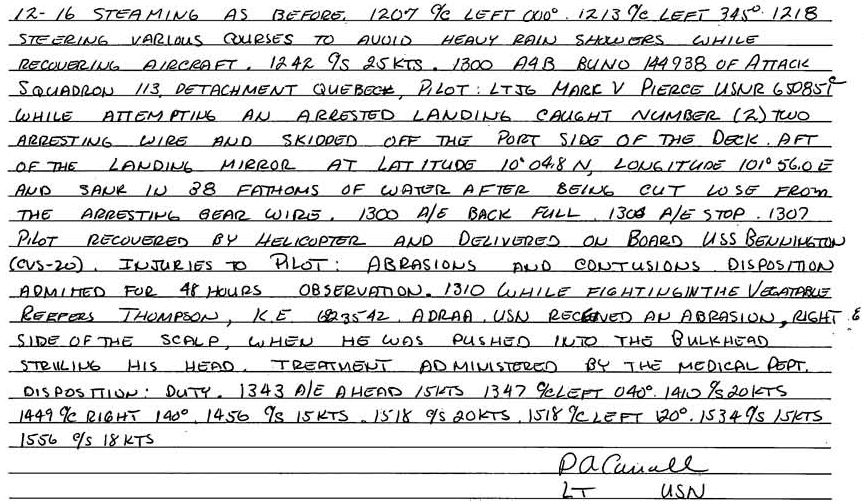 12-16 STEAMING AS BEFORE. 1207 C/C LEFT 000°. 1213 C/C LEFT 345° 1218
STEERING VARIOUS COURSES TO AVOID HEAVY RAIN SHOWERS WHILE
RECOVERING AIRCRAFT. 1242 C/S 25 KTS. 1300 A4B BUNO 144938 OF ATTACK
SQUADRON 113, DETACHMENT QUEBECK, PILOT: LTJG MARK V PIERCE USNR 650851
WHILE ATTEMPTING AN ARRESTED LANDING CAUGHT NUMBER (2) TWO
ARRESTING WIRE AND SKIDDED OFF THE PORT SIDE OF THE DECK. AFT
OF THE LANDING MIRROR AT LATITUDE 10° 04.8 N, LONGITUDE 101° 56.0 E
AND SANK IN 38 FATHOMS OF WATER AFTER BEING CUT LOSE FROM
THE ARRESTING GEAR WIRE. 1300 A/E BACK FULL. 1303 A/E STOP. 1307
PILOT RECOVERED BY HELICOPTER AND DELIVERED ON BOARD USS BENNINGTON
(CVS-20). INJURIES TO PILOT: ABRASIONS AND CONTUSIONS DISPOSITION
ADMITTED FOR 48 HOURS OBSERVATION. 1310 WHILE FIGHTING IN THE VEGATABLE
REEFERS THOMPSON, K.E ADRAA, USN RECEIVED AN ABRASION, RIGHT
SIDE OF THE SCALP, WHEN HE WAS PUSHED INTO THE BULKHEAD
STRIKING HIS HEAD. TREATMENT ADMINISTERED BY THE MEDICAL DEPT.
DISPOSITION: DUTY. 1343 A/E AHEAD 15KTS 1347 C/C LEFT 040°. 1410 C/S 20 KTS
1449 C/C RIGHT 140°. 1456 C/S 15 KTS. 1518 C/S 20 KTS. 1518 C/C LEFT 120°. 1534 C/S 15KTS
1556 C/S 18 KTS
LT USN